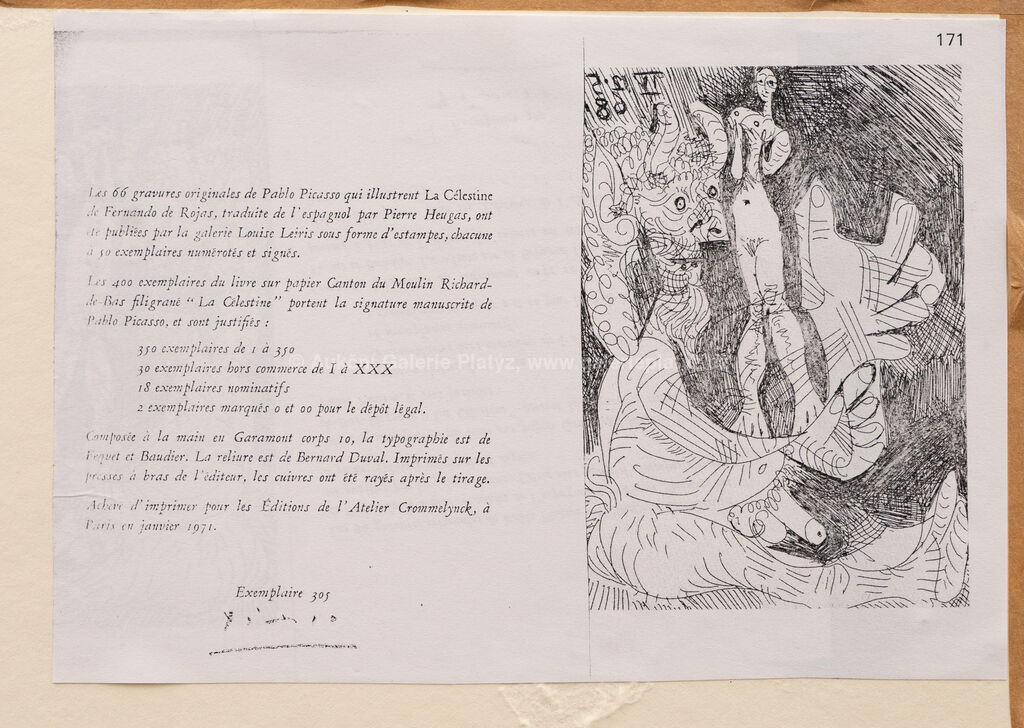 171
Les 66 gravures originales de Pablo Picasso qui illustrent La Célestine
de Fernando de Rojas, traduite de l'espagnol par Pierre Heugas, ont
été publiées par la galerie Louise Leiris sous forme d'estampes, chacune
à 50 exemplaires numérotés et signés.
Les 400 exemplaires du livre sur papier Canton du Moulin Richard-
de-Bas filigrané “ La Célestine” portent la signature manuscrite de
Pablo Picasso, et sont justifiés :
350 exemplaires de 1 à 350
30 exemplaires hors commerce de I à XXX
18 exemplaires nominatifs
2 exemplaires marqués 0 et 00 pour le dépôt légal.
Composée à la main en Garamont corps 10, la typographie est de
Fequet et Baudier. La reliure est de Bernard Duval. Imprimés sur les
presses à bras de l'éditeur, les cuivres ont été rayés après le tirage.
Achevé d'imprimer pour les Éditions de l'Atelier Crommelynck, à
Paris en janvier 1971.
Exemplaire 305
Picasso
© Galerie Platyz, www.